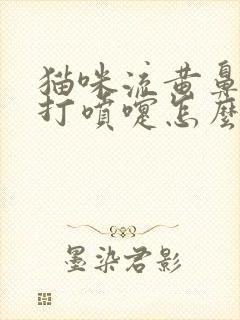 猫咪流黄鼻
打噴嚏怎麼
墨染君影